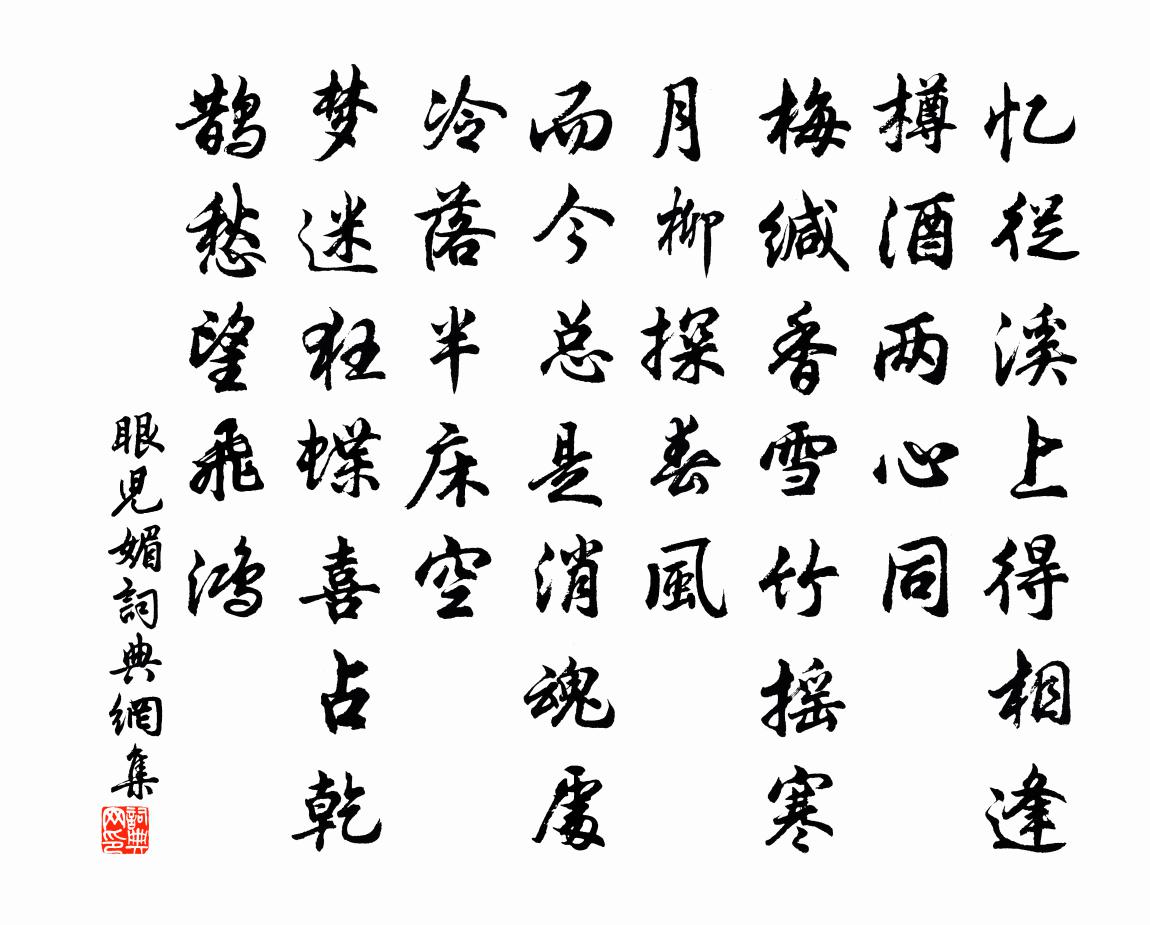 忆从溪上得相逢
樽酒两心同
梅缄香雪竹摇寒
月柳探春風
而今总是消魂處
冷落半床空
梦迷狂蝶喜占乾
鹊愁望飛鸿
眼兒媚詞典網集
詞典网印